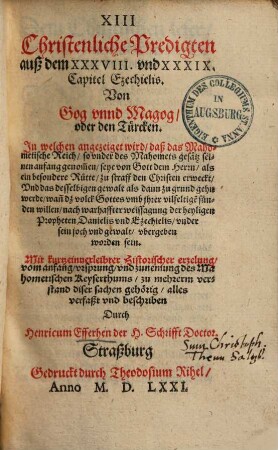 XIII
Christenliche Predigten
auß dem XXXVIII. vnd XXXIX.
Capitel Ezechielis.
Von
Gog vnnd Magog/
oder den Türcken.
In welchen angezeiget wird/ daß das Maho-
metische Reich/ so vnder des Mahomets gesätz sei-
nen anfang genom̃en/ seye von Gott dem Herrn/ als
ein besondere Rutte/ zu straff den Christen erweckt/
Vnd das desselbigen gewalt als dann zu grund gehn
werde/ wañ dz volck Gottes vmb jhrer vilfeltigẽ sün-
den willen/ nach warhaffter weissagung der heyligen
Propheten Danielis vnd Ezechielis/ vnder
sein joch vnd gewalt/ vbergeben
worden sein.
Mit kurtzeinuerleibter Historischer erzelung/
vom anfang/ vrsprung/ vnd zunemung des Ma-
hometischen Keyserthums/ zu mehrerm ver-
stand diser sachen gehörig/ alles
verfaßt vnd beschriben
Durch
Henricum Efferhen der H. Schrifft Doctor.
Straßburg
Gedruckt durch Theodosium Rihel/
Anno M. D. LXXI.
EIGENTHUM DES COLLEGIUMS ST. ANNA
IN
AUGSBURG
Christoph